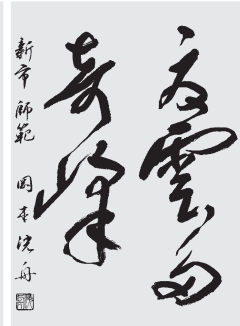 夏雲多
奇峰
新市 師範 岡本浣舟